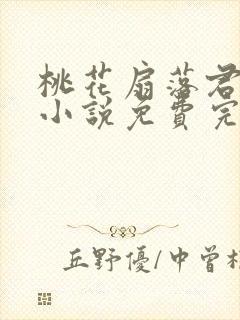 桃花扇落君
小说免費完
丘野優/中曾根